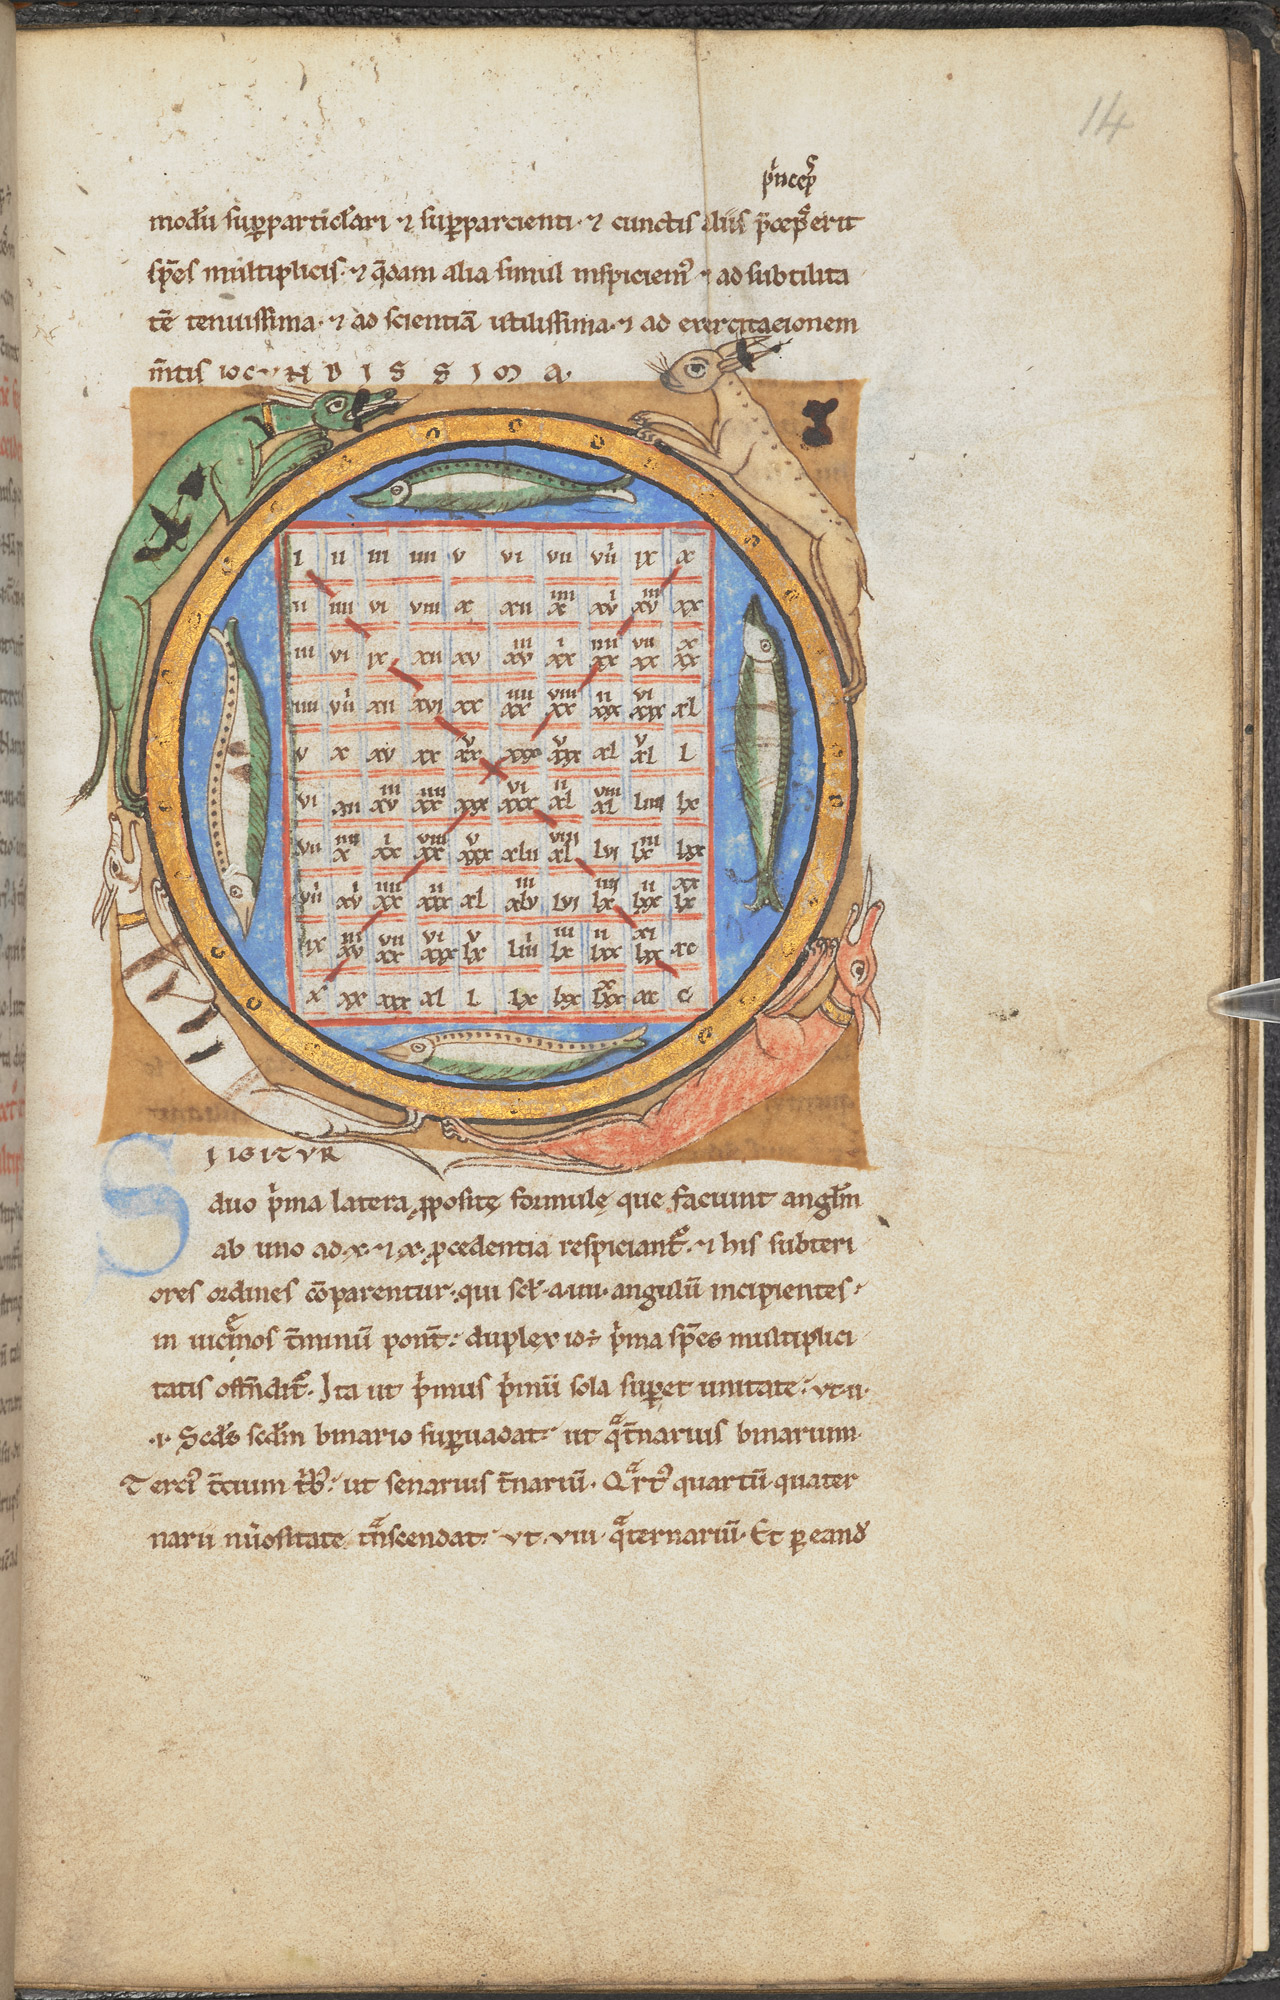 14
p̾ncep̾s
modũ sup̱particl̃ari ⁊ sup̱parcienti· ⁊ cunctis aliis p̃cep̱erit
sp̃es multiplicis· ⁊ q̃dam alia simul inspiciem᷒ ⁊ ad subtilita
tẽ tenuissima· ⁊ ad scientiã utilissima· ⁊ ad exercitacionem
m̃tis iocuNDISSIMA·
i ii iii iiii v vi vii viii ix x
ii iiii vi viii x xii xiiii xvi xviii xx
iii vi ix xii xv xviii xxi xxiiii xxvii xxx
iiii viii xii xvi xx xxiiii xxviii xxxii xxxvi xl
v x xv xx xxv xxx xxxv xl xlv l
vi xii xviii xxiiii xxx xxxvi xlii xlviii liiii lx
vii xiiii xxi xxviii xxxv xlii xlviiii lvi lxiii lxx
viii xvi xxiiii xxxii xl xlviii lvi lxiiii lxxii lxxx
ix xviii xxvii xxxvi xlv liiii lxiii lxxii lxxxi xc
x xx xxx xl l lx lxx lxxx xc c
SI IGITVR
duo p̾ma latera p̱posite formule que faciunt angl̃m
ab uno ad·x·⁊·x·p̱cedentia respiciant᷒·⁊ his subteri
ores ordines cõparentur·qui scl̃·a·iiii·angulũ incipientes·
in uicinos t̃minũ pont̃· duplex id÷ p̾ma sp̃es multiplici
tatis ost̃ndit᷒· Ita ut p̾mus p̾mũ sola sup̱et unitate· vt·ii·
·i· Scd̃s scd̃m binario sup̱uadat· ut q̃t̃narius binarium·
Terci᷒ t̃cium t̾b᷒· ut senarius t̃nariũ· Q̃rt᷒ quartũ quater
narii nũositate t̃nscendat· vt·viii·q̃ternariũ· Et p̱ eand̃